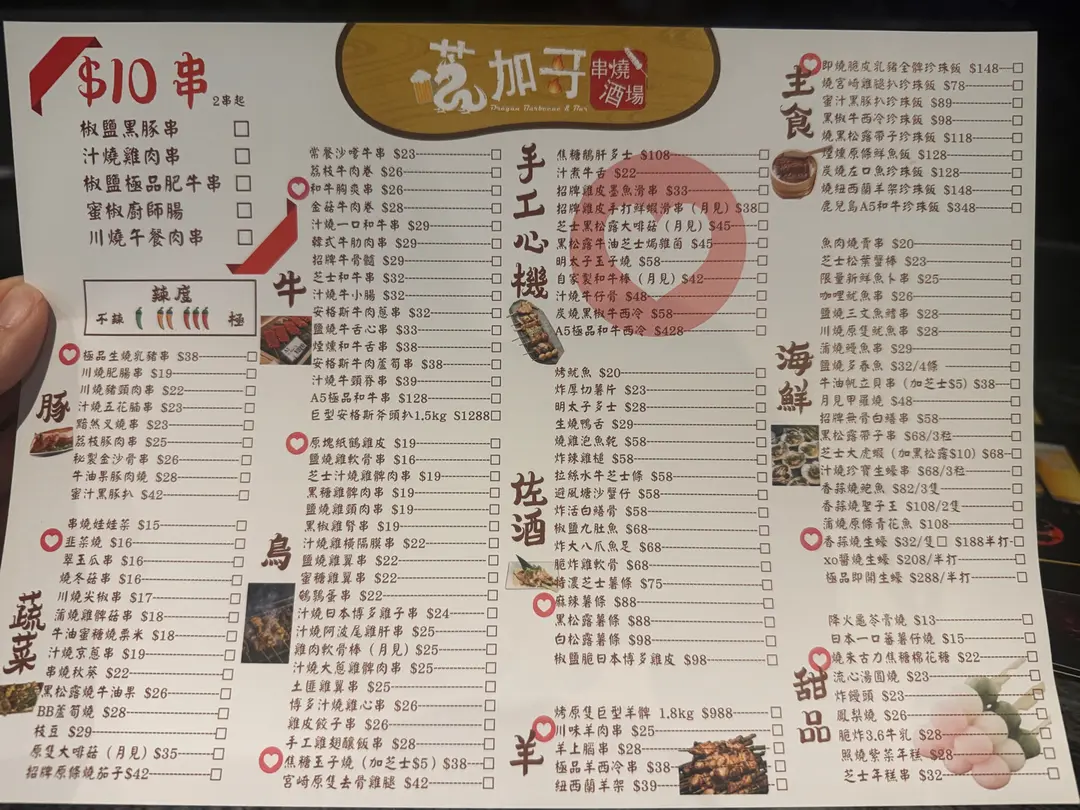 $10 串 2串起
椒鹽黑豚串
汁燒雞肉串
椒鹽極品肥牛串
蜜椒廚師腸
川燒午餐肉串
辣度
不辣 極
豚
極品生燒乳豬串 $38
川燒肥腸串 $19
川燒豬頸肉串 $22
汁燒五花腩串 $23
黯然叉燒串 $23
荔枝豚肉串 $25
秘製金沙骨串 $26
牛油果豚肉燒 $28
蜜汁黑豚扒 $42
蔬菜
串燒娃娃菜 $15
韭菜燒 $16
翠玉瓜串 $16
燒冬菇串 $16
川燒尖椒串 $17
蒲燒雞髀菇串 $18
牛油蜜糖燒粟米 $18
汁燒京葱串 $19
串燒秋葵 $22
黑松露燒牛油果 $26
BB蘆筍燒 $28
枝豆 $29
原隻大啡菇（月見）$35
招牌原條燒茄子$42
串燒酒場
Dragon Barbecue & Bar
牛
常餐沙嗲牛串 $23
荔枝牛肉卷 $26
和牛胸爽串 $26
金菇牛肉卷 $28
汁燒一口和牛串 $29
韓式牛肋肉串 $29
招牌牛骨髓 $29
芝士和牛串 $32
汁燒牛小腸 $32
安格斯牛肉葱串 $32
鹽燒牛舌心串 $33
煙燻和牛舌串 $38
安格斯牛肉蘆筍串 $38
汁燒牛頸脊串 $39
A5極品和牛串 $128
巨型安格斯斧頭扒1.5kg $1288
鳥
原塊紙鶴雞皮 $19
鹽燒雞軟骨串 $16
芝士汁燒雞髀肉串 $19
黑糖雞髀肉串 $19
鹽燒雞頸肉串 $19
黑椒雞腎串 $19
汁燒雞橫隔膜串 $22
鹽燒雞翼串 $22
蜜糖雞翼串 $22
鵪鶉蛋串 $22
汁燒日本博多雞子串 $24
汁燒阿波尾雞肝串 $25
雞肉軟骨棒（月見）$25
汁燒大葱雞髀肉串 $25
土匪雞翼串 $25
博多汁燒雞心串 $26
雞皮餃子串 $26
手工雞翅釀飯串 $28
焦糖玉子燒（加芝士$5）$38
宮崎原隻去骨雞腿 $42
手工心機
焦糖鵝肝多士 $108
汁煮牛舌 $22
招牌雞皮墨魚滑串 $33
招牌雞皮手打鮮蝦滑串（月見）$38
芝士黑松露大啡菇（月見）$45
黑松露牛油芝士焗雜菌 $45
明太子玉子燒 $58
自家製和牛棒（月見）$42
汁燒牛仔骨 $48
炭燒黑椒牛西冷 $58
A5極品和牛西冷 $428
佐酒
烤魷魚 $20
炸厚切薯片 $23
明太子多士 $28
生燒鴨舌 $29
燒雞泡魚乾 $58
炸辣雞槌 $58
拉絲水牛芝士條 $58
避風塘沙蟹仔 $58
炸活白鱔骨 $58
椒鹽九肚魚 $68
炸大八爪魚足 $68
脆炸雞軟骨 $68
特濃芝士薯條 $75
麻辣薯條 $88
黑松露薯條 $88
白松露薯條 $98
椒鹽脆日本博多雞皮 $98
羊
烤原隻巨型羊髀 1.8kg $988
川味羊肉串 $25
羊上腦串 $28
極品羊西冷串 $38
紐西蘭羊架 $39
主食
即燒脆皮乳豬全髀珍珠飯 $148
燒宮崎雞腿扒珍珠飯 $78
蜜汁黑豚扒珍珠飯 $89
黑椒牛西冷珍珠飯 $98
燒黑松露帶子珍珠飯 $118
煙燻原條鮮魷飯 $128
炙燒左口魚珍珠飯 $128
燒紐西蘭羊架珍珠飯 $148
鹿兒島A5和牛珍珠飯 $348
海鮮
魚肉燒賣串 $20
芝士松葉蟹棒 $23
限量新鮮魚卜串 $25
咖哩魷魚串 $26
鹽燒三文魚鰭串 $28
川燒原隻魷魚串 $28
蒲燒鰻魚串 $29
鹽燒多春魚 $32/4條
牛油帆立貝串（加芝士$5）$38
月見甲羅燒 $48
招牌無骨白鱔串 $58
黑松露帶子串 $68/3粒
芝士大虎蝦（加黑松露$10）$68
汁燒珍寶生蠔串 $68/3粒
香蒜燒鮑魚 $82/3隻
香蒜燒聖子王 $108/2隻
蒲燒原條青花魚 $108
香蒜燒生蠔 $32/隻 $188半打
xo醬燒生蠔 $208/半打
極品即開生蠔 $288/半打
甜品
降火龜苓膏燒 $13
日本一口蕃薯仔燒 $15
燒朱古力焦糖棉花糖 $22
流心湯圓燒 $23
炸饅頭 $23
鳳梨燒 $26
脆炸3.6牛乳 $28
照燒紫菜年糕 $28
芝士年糕串 $32